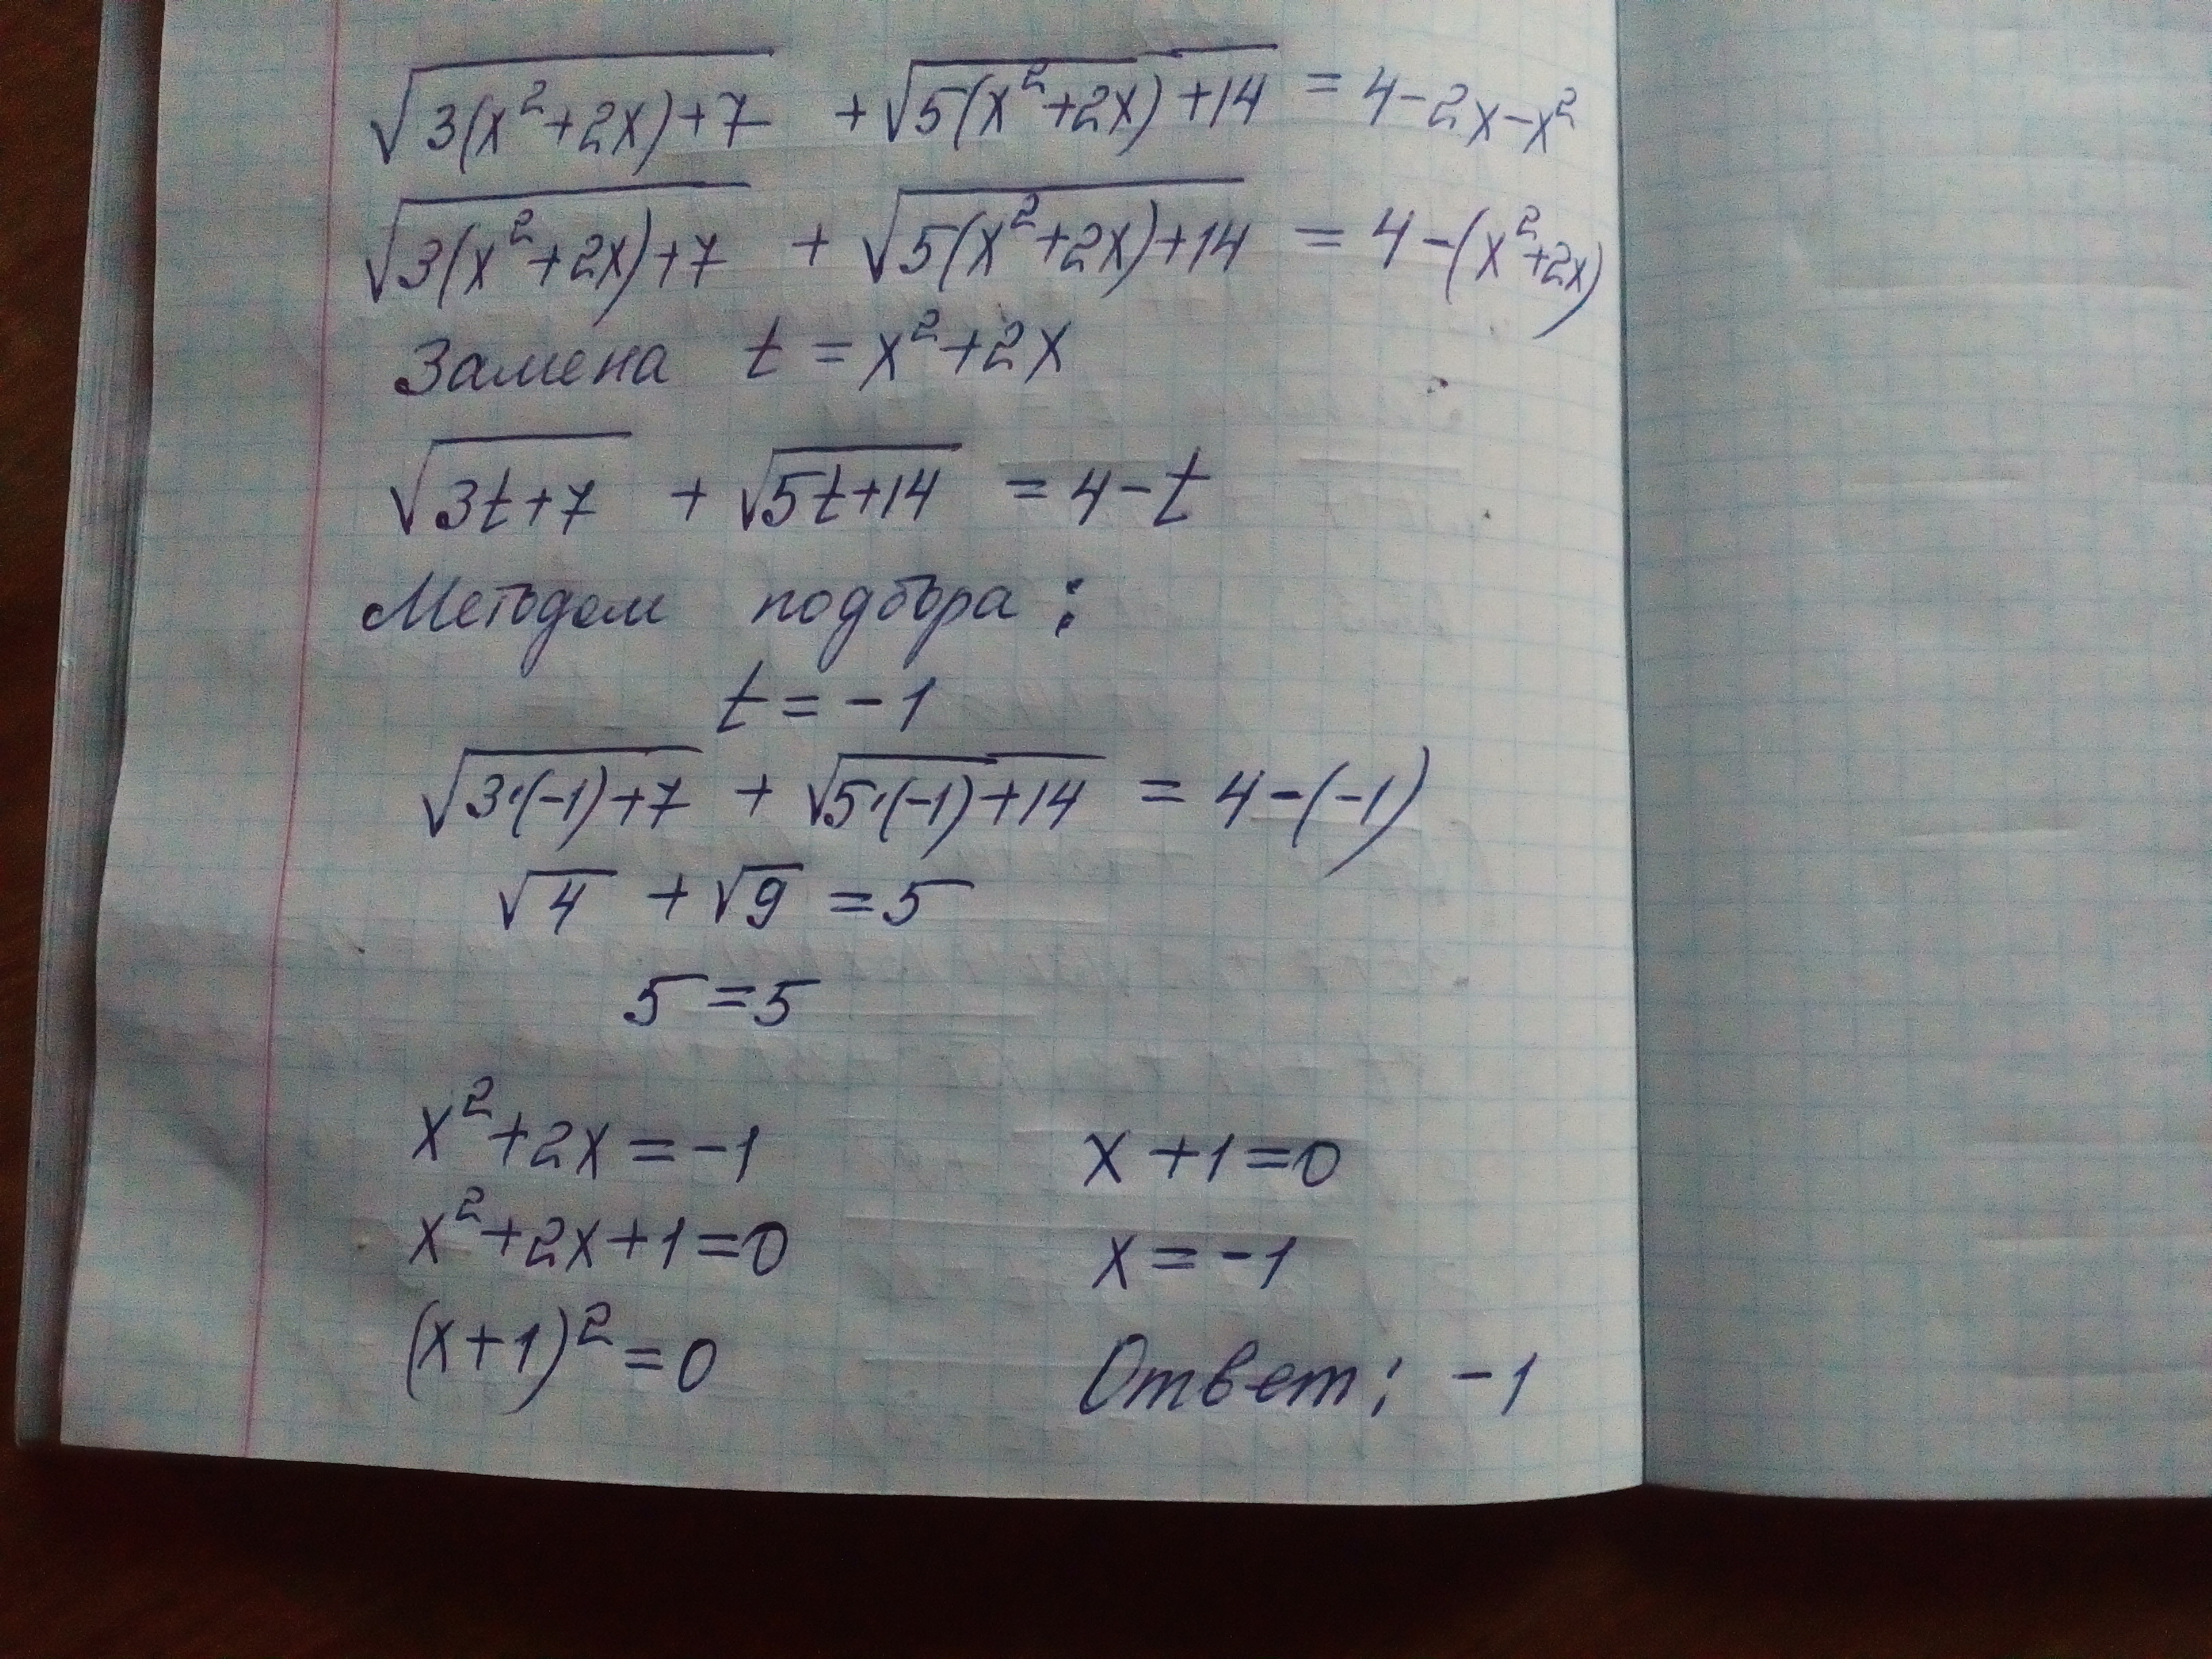 √3(x²+2x)+7 + √5(x²+2x)+14 = 4-2x-x²
√3(x²+2x)+7 + √5(x²+2x)+14 = 4-(x²+2x)
Замена t = x²+2x
√3t+7 + √5t+14 = 4-t
Методом подбора:
t = -1
√3·(-1)+7 + √5·(-1)+14 = 4-(-1)
√4 + √9 = 5
5 = 5
x²+2x = -1
x²+2x+1=0
(x+1)² = 0
x+1=0
x = -1
Ответ: -1